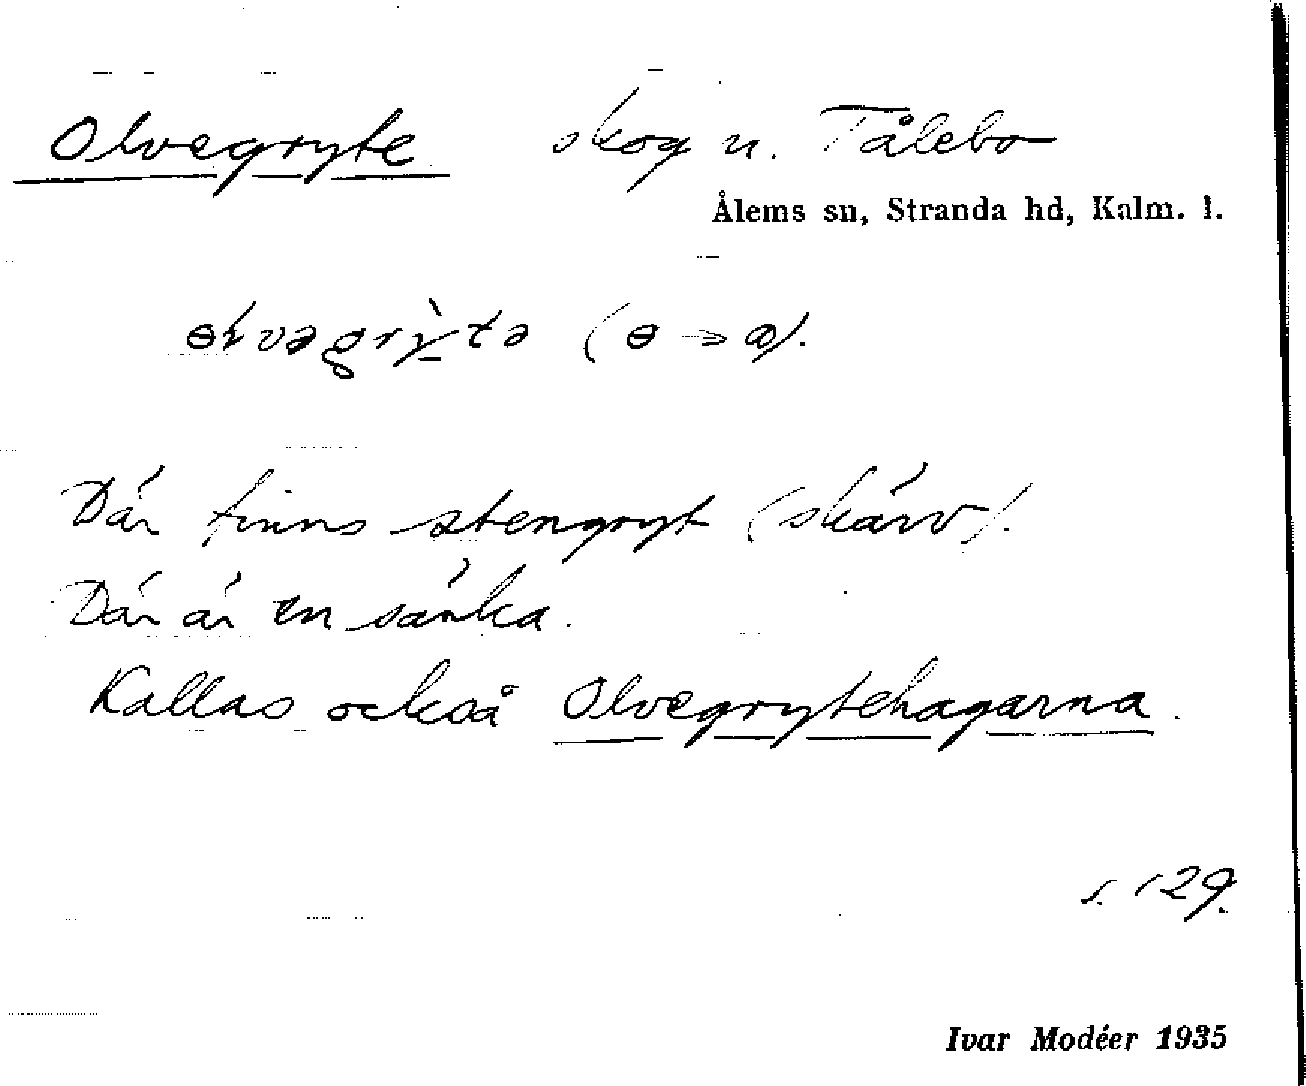 Olvegryte skog n. Tålebo
Ålems sn, Stranda hd, Kalm. l.
ɵlvəgrỳtə (ɵ → a).
Där finns stengryt (skärv).
Där är en sänka.
Kallas också Olvegrytehagarna.
s. 129.
Ivar Modéer 1935